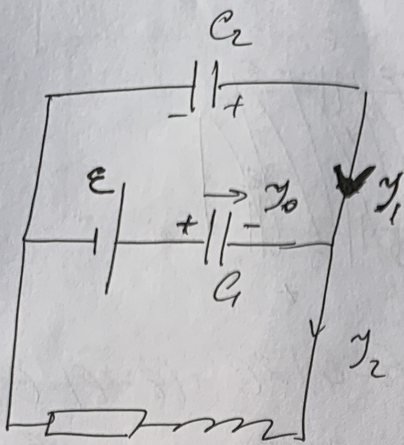 C₂
- +
ε
+ -
𝒥₀
𝒥₁
C₁
𝒥₂